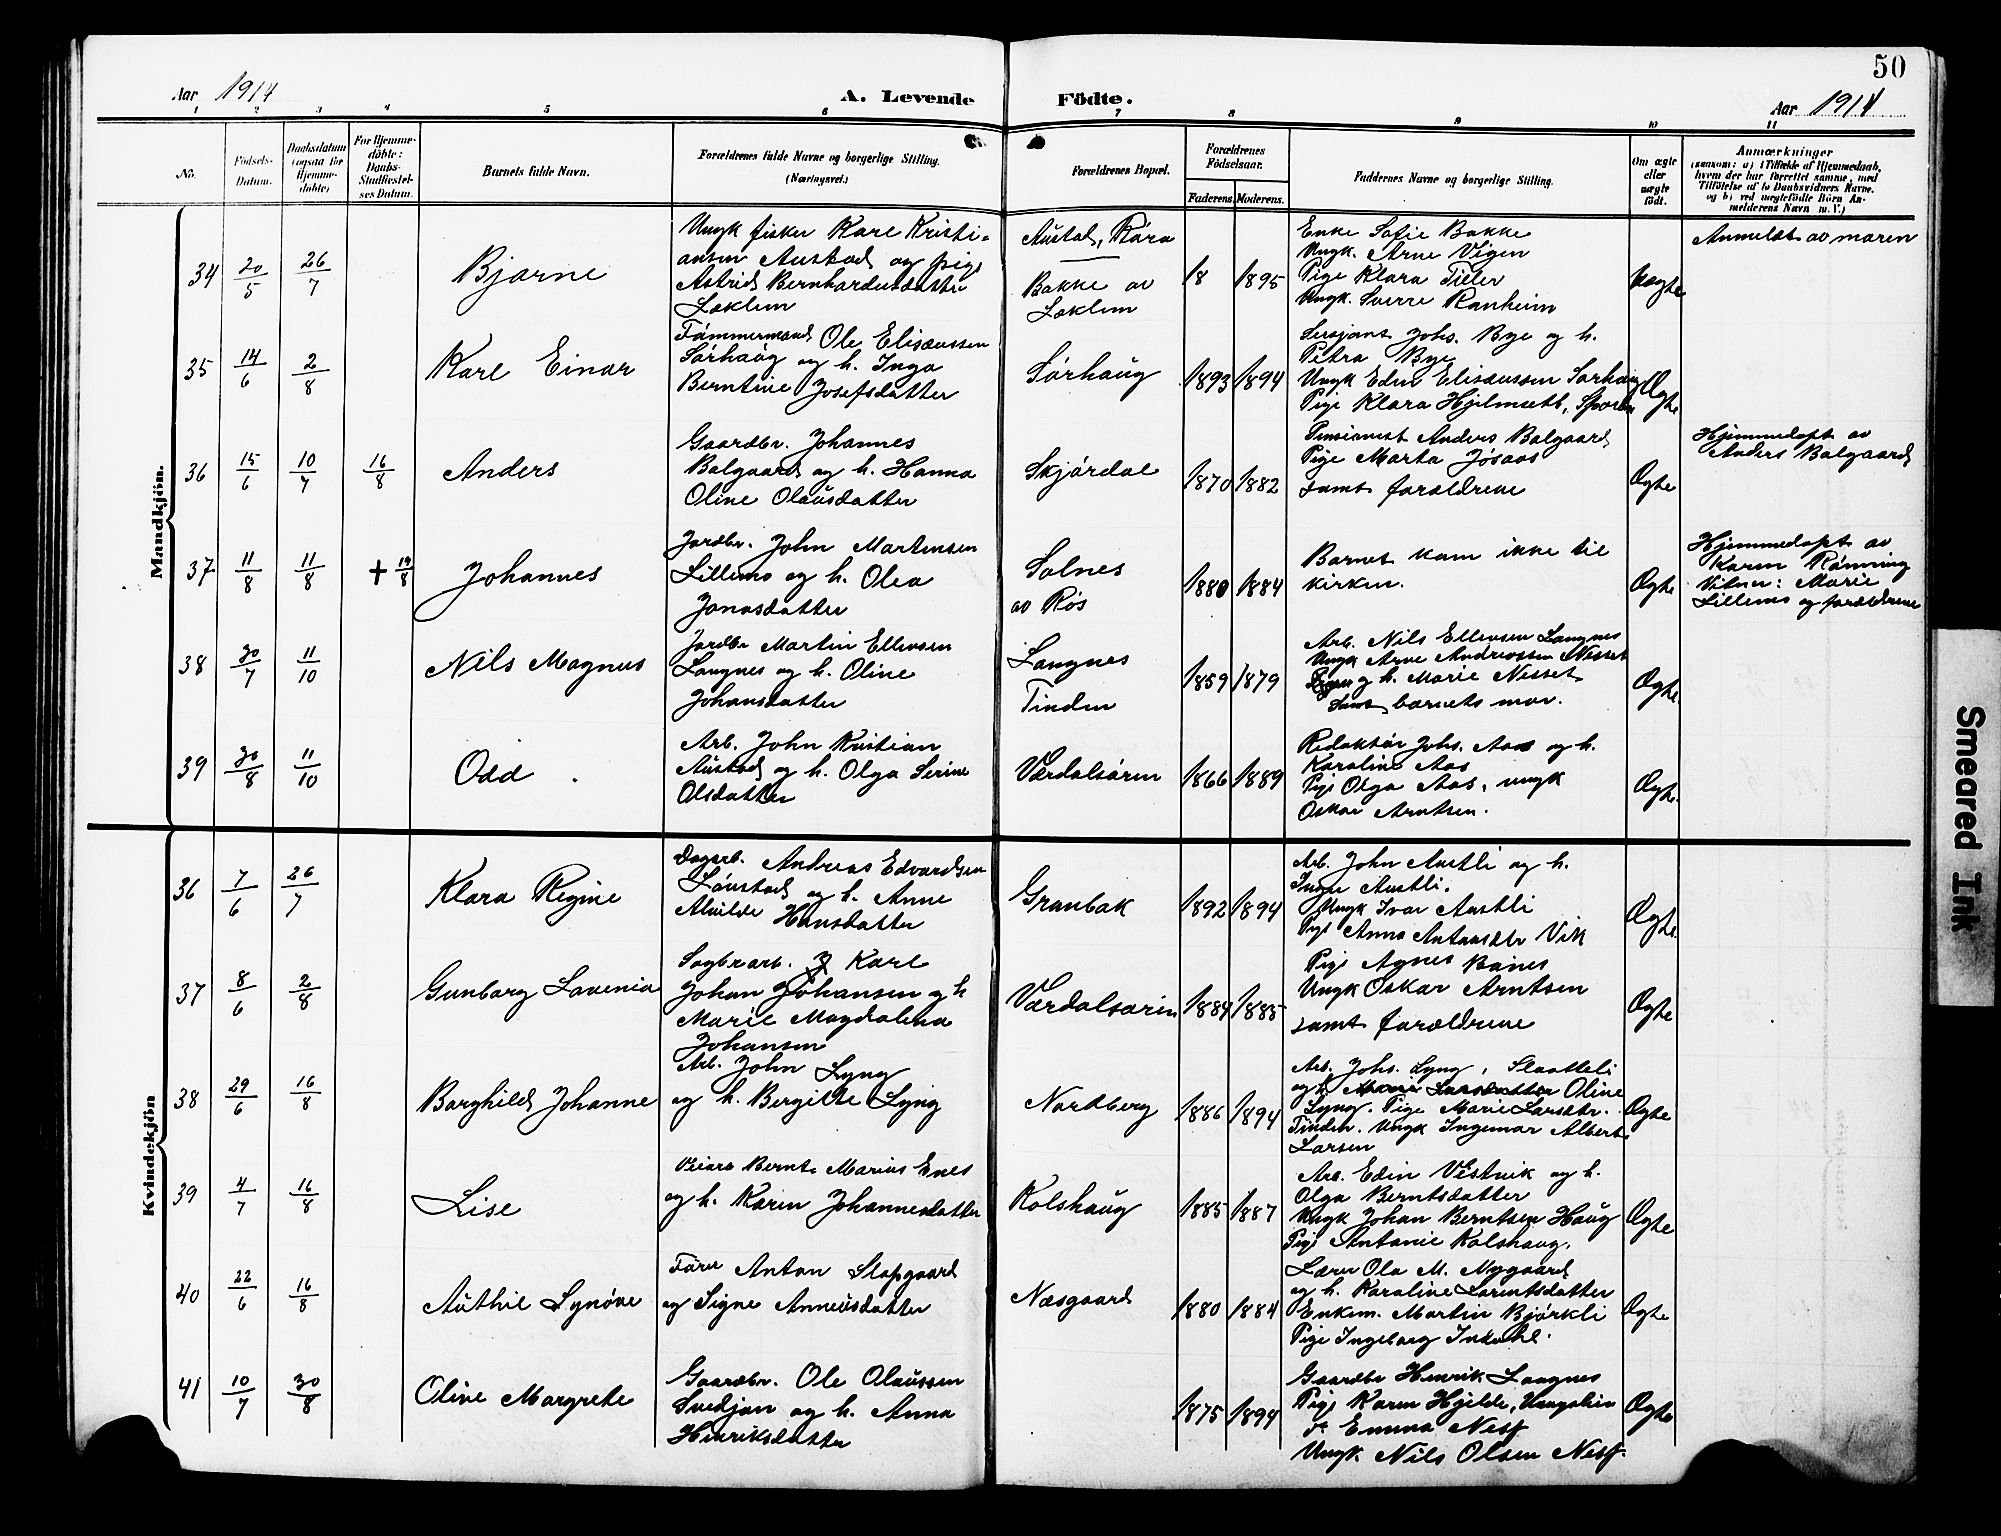 50
Aar 1914
A. Levende Födte.
Aar 1914
1 2 3 4 5 6 7 8 9 10 11
No.
Födsels-
Datum.
Daabsdatum
(ogsaa for
Hjemme-
döbte)
For Hjemme-
döbte:
Daabs-
Stadfæstel-
ses Datum.
Barnets fulde Navn.
Forældrenes fulde Navne og borgerlige Stilling.
(Næringsvei.)
Forældrenes Bopæl.
Forældrenes
Födselsaar.
Faderens.
Moderens.
Faddernes Navne og borgerlige Stilling.
Om ægte
eller
uægte
födt.
Anmærkninger
(saasom: a) i Tilfælde af Hjemmedaab,
hvem der har forrettet samme, med
Tilföielse af to Daabsvidners Navne.
og b) ved uægtefödte Börn An-
melderens Navn m. V.)
Mandkjön.
34
20/5
26/7
Bjarne
Ungk fisker Karl Kristi-
ansen Austad og pige
Astrid Bernhardusdatter
Leklem
Austad, Røra
Bakke av
Leklem
18
1895
Enke Sofie Bakke
Ungk. Arne Vigen
Pige Klara Tiller
Ungk. Sverre Ranheim
Uægte
Anmeldt av moren
35
14/6
2/8
Karl Einar
Tømmermand Ole Eliseussen
Sørhaug og h. Inga
Berntine Josefsdatter
Sørhaug
1893
1894
Sersjant Johs. Bye og h.
Petra Bye
Ungk Edin Eliseussen Sørhaug
Pige Klara Hjelmseth,
Ægte
36
15/6
10/7
16/8
Anders
Gaardbr. Johannes
Balgaard og h. Hanna
Oline Olausdatter
Skjørdal
1870
1882
Pensionist Anders Balgaard
Pige Marta Jøsaas
samt forældrene
Ægte
Hjemmedøpt av
Anders Balgaard
37
11/8
11/8
+ 14/8
Johannes
Jordbr. John Martinsen
Lillemo og h. Olea
Jonasdatter
Solnes
av Røs
1880
1884
Barnet kom ikke til
kirken.
Ægte
Hjemmedøpt av
Karen Rønning
Vitner: Marie
Lillemo og forældrene
38
30/7
11/10
Nils Magnus
Jordbr Martin Ellevsen
Langnes og h. Oline
Johansdatter
Langnes
Tinden
1859
1879
Arb. Nils Ellevsen Langnes
Ungk Arne Andreassen Nesset
og h. Marie Nesset
Samt barnets mor.
Ægte
39
30/8
11/10
Odd
Arb. John Kristian
Austad og h. Olga Serine
Olsdatter
Værdalsøren
1866
1889
Redaktør Johs. Aas og h.
Karoline Aas
Pige Olga Aas, ungk
Oskar Arntsen.
Ægte.
Kvindekjön
36
7/6
26/7
Klara Regine
Dagarb. Andreas Edvardsen
Løvstad og h. Anne
Alvilde Hansdatter
Granbak
1892
1894
Arb. John Austli og h.
Inger Austli.
Ungk Ivar Austli
Pige Anna Antonsdtr Vik
Ægte.
37
8/6
2/8
Gunborg Lavenia
Sagbrarb. Karl
Johan Johansen og h
Marie Magdalena
Johansen
Værdalsøren
1884
1885
Pige Agnes Baines
Ungk Oskar Arntsen
samt forældrene
Ægte
38
29/6
16/8
Borghild Johanne
Arb. John Lyng
og h. Bergitte Lyng
Nordberg
1886
1894
Arb. Johs. Lyng, Slaatteli
og h Marie Larsdatter Oline
Lyng. Pige Marie Larsdtr.
Tinden. Ungk Ingemar Albert
Larsen
Ægte
39
4/7
16/8
Lise
Bernt Marius Enes
og h. Karen Johannesdatter
Kolshaug
1885
1887
Arb. Edin Vestvik og h.
Olga Berntsdatter
Ungk Johan Berntsen Haug
Pige Antonie Kolshaug.
Ægte
40
22/6
16/8
Authil Synøve
Anton Slapgaard
og Signe Anneusdatter
Næsgaard
1880
1884
Lærer Ola M. Nygaard
og h. Karoline Lorentsdatter
Enkem. Martin Bjørkli
Pige Ingeborg Indahl.
Ægte
41
10/7
30/8
Olive Margrete
Gaardbr. Ole Olaussen
Svedjan og h. Anna
Henriksdatter
1875
1894
Gaardbr Henrik Langnes
Pige Karen Hjelde,
Emma Ness
Ungk. Nils Olsen Ness
Ægte
Smeared Ink